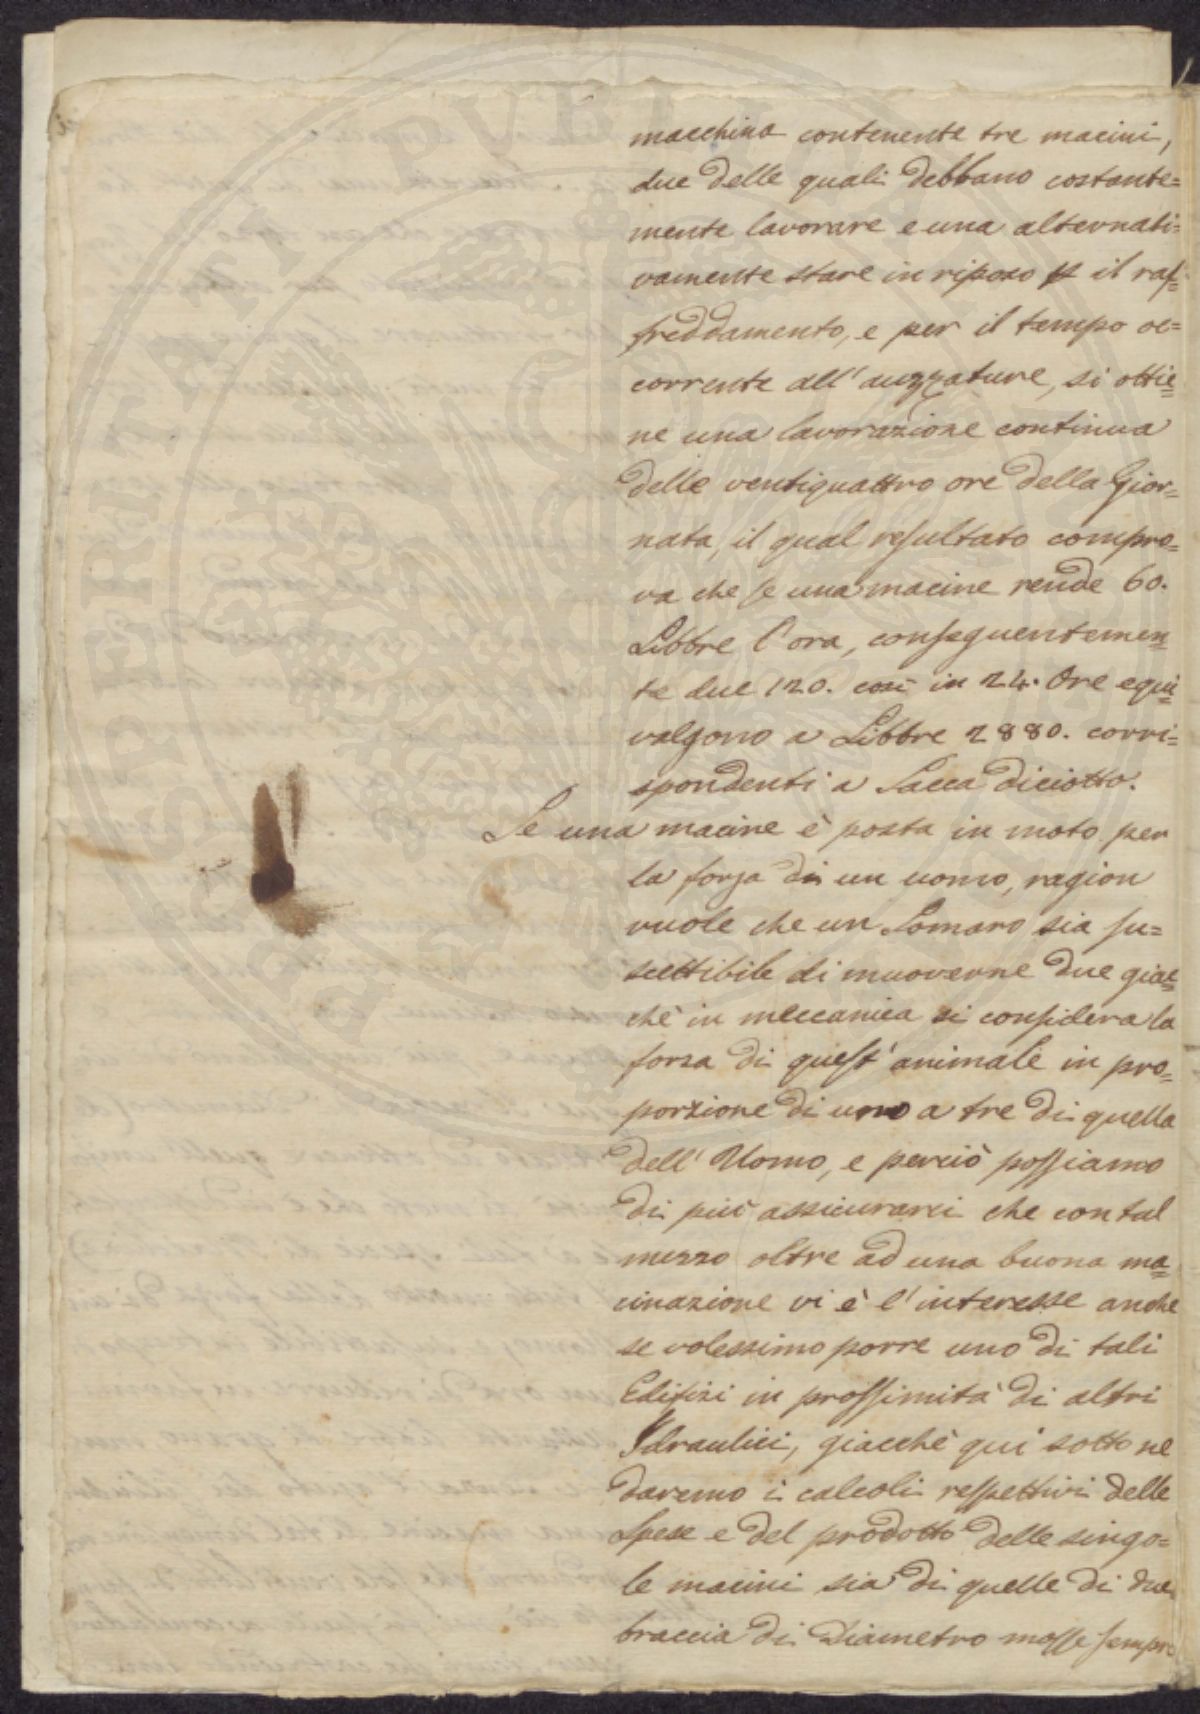 macchina contenente tre macini,
due delle quali debbano costante=
mente lavorare e una alternati=
vamente stare in riposo p il raf=
freddamento, e per il tempo oc=
corrente all' auzzature, si ottie=
ne una lavorazione continua
delle ventiquattro ore della Gior=
nata, il qual resultato compro=
va che se una macine rende 60.
Libbre l'ora, conseguentemen=
te due 120. così in 24. Ore equi=
valgono a Libbre 2880. corri=
spondenti a Sacca diciotto.
Se una macine è posta in moto per
la forza di un uomo, ragion
vuole che un Somaro sia su=
scettibile di muoverne due giac=
chè in meccanica si considera la
forza di quest' animale in pro=
porzione di uno a tre di quella
dell' Uomo, e perciò possiamo
di più assicurarci che con tal
mezzo oltre ad una buona ma=
cinazione vi è l' interesse anche
se volessimo porre uno di tali
Edifizi in prossimità di altri
Idraulici, giacchè qui sotto ne
daremo i calcoli respettivi delle
Spese e del prodotto delle singo=
le macini sia di quelle di due
braccia di Diametro mosse sempre